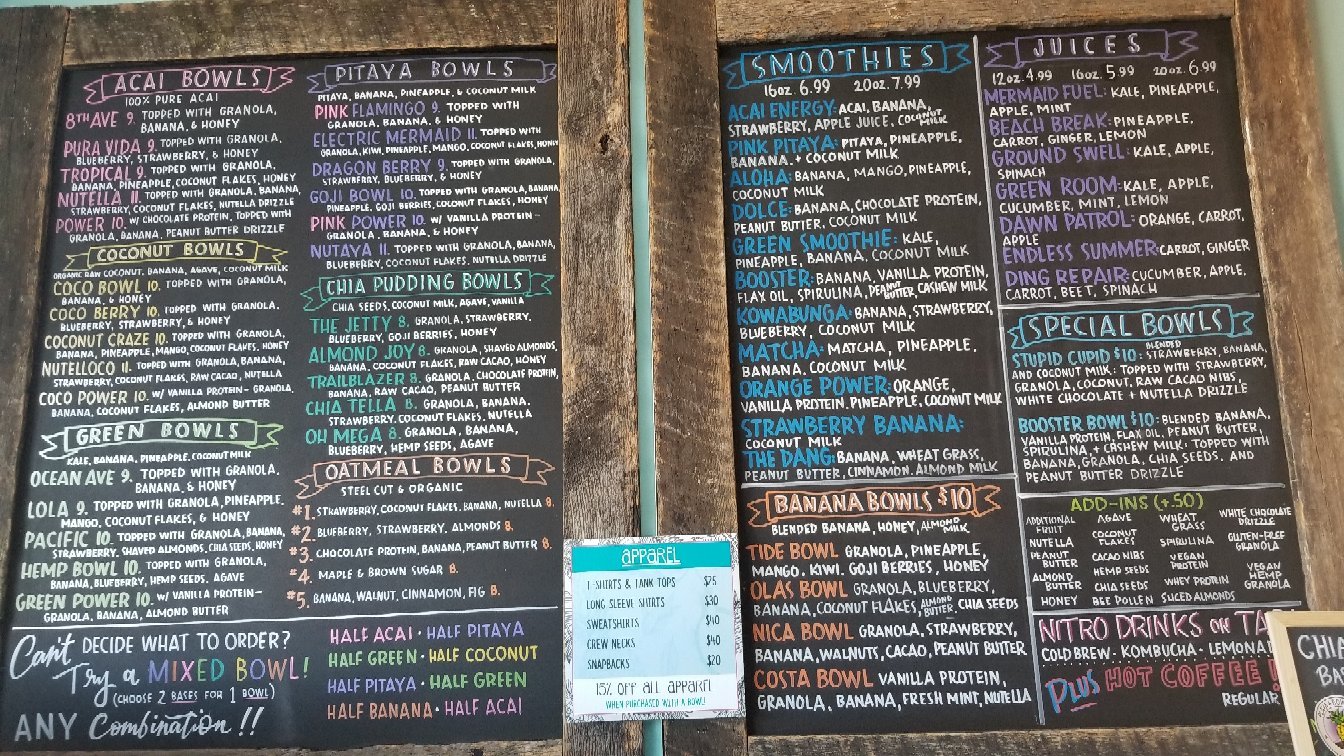 ACAI BOWLS
100% PURE ACAI
8TH AVE 9. TOPPED WITH GRANOLA,
BANANA, & HONEY
PURA VIDA 9. TOPPED WITH GRANOLA,
BLUEBERRY, STRAWBERRY, & HONEY
TROPICAL 9. TOPPED WITH GRANOLA,
BANANA, PINEAPPLE, COCONUT FLAKES, HONEY
NUTELLA 11. TOPPED WITH GRANOLA, BANANA,
STRAWBERRY, COCONUT FLAKES, NUTELLA DRIZZLE
POWER 10. W/ CHOCOLATE PROTEIN, TOPPED WITH
GRANOLA, BANANA, PEANUT BUTTER DRIZZLE
COCONUT BOWLS
ORGANIC RAW COCONUT, BANANA, AGAVE, COCONUT MILK
COCO BOWL 10. TOPPED WITH GRANOLA,
BANANA, & HONEY
COCO BERRY 10. TOPPED WITH GRANOLA,
BLUEBERRY, STRAWBERRY, & HONEY
COCONUT CRAZE 10. TOPPED WITH GRANOLA,
BANANA, PINEAPPLE, MANGO, COCONUT FLAKES, HONEY
NUTELLOCO 11. TOPPED WITH GRANOLA, BANANA,
STRAWBERRY, COCONUT FLAKES, RAW CACAO, NUTELLA
COCO POWER 10. W/ VANILLA PROTEIN - GRANOLA,
BANANA, COCONUT FLAKES, ALMOND BUTTER
GREEN BOWLS
KALE, BANANA, PINEAPPLE, COCONUT MILK
OCEAN AVE 9. TOPPED WITH GRANOLA,
BANANA, & HONEY
LOLA 9. TOPPED WITH GRANOLA, PINEAPPLE,
MANGO, COCONUT FLAKES, & HONEY
PACIFIC 10. TOPPED WITH GRANOLA, BANANA,
STRAWBERRY, SHAVED ALMONDS, CHIA SEEDS, HONEY
HEMP BOWL 10. TOPPED WITH GRANOLA,
BANANA, BLUEBERRY, HEMP SEEDS, AGAVE
GREEN POWER 10. W/ VANILLA PROTEIN -
GRANOLA, BANANA, ALMOND BUTTER
PITAYA BOWLS
PITAYA, BANANA, PINEAPPLE, & COCONUT MILK
PINK FLAMINGO 9. TOPPED WITH
GRANOLA, BANANA, & HONEY
ELECTRIC MERMAID 11. TOPPED WITH
GRANOLA, KIWI, PINEAPPLE, MANGO, COCONUT FLAKES, HONEY
DRAGON BERRY 9. TOPPED WITH GRANOLA,
STRAWBERRY, BLUEBERRY, & HONEY
GOJI BOWL 10. TOPPED WITH GRANOLA, BANANA,
PINEAPPLE, GOJI BERRIES, COCONUT FLAKES, HONEY
PINK POWER 10. W/ VANILLA PROTEIN -
GRANOLA, BANANA, & HONEY
NUTAYA 11. TOPPED WITH GRANOLA, BANANA,
BLUEBERRY, COCONUT FLAKES, NUTELLA DRIZZLE
CHIA PUDDING BOWLS
CHIA SEEDS, COCONUT MILK, AGAVE, VANILLA
THE JETTY 8. GRANOLA, STRAWBERRY,
BLUEBERRY, GOJI BERRIES, HONEY
ALMOND JOY 8. GRANOLA, SHAVED ALMONDS,
BANANA, COCONUT FLAKES, RAW CACAO, HONEY
TRAILBLAZER 8. GRANOLA, CHOCOLATE PROTEIN,
BANANA, RAW CACAO, PEANUT BUTTER
CHIA TELLA 8. GRANOLA, BANANA,
STRAWBERRY, COCONUT FLAKES, NUTELLA
OH MEGA 8. GRANOLA, BANANA,
BLUEBERRY, HEMP SEEDS, AGAVE
OATMEAL BOWLS
STEEL CUT & ORGANIC
#1. STRAWBERRY, COCONUT FLAKES, BANANA, NUTELLA 8.
#2. BLUEBERRY, STRAWBERRY, ALMONDS 8.
#3. CHOCOLATE PROTEIN, BANANA, PEANUT BUTTER 8.
#4. MAPLE & BROWN SUGAR 8.
#5. BANANA, WALNUT, CINNAMON, FIG 8.
Can't DECIDE WHAT TO ORDER?
Try a MIXED BOWL!
(CHOOSE 2 BASES FOR 1 BOWL)
ANY Combination!!
HALF ACAI · HALF PITAYA
HALF GREEN · HALF COCONUT
HALF PITAYA · HALF GREEN
HALF BANANA · HALF ACAI
APPAREL
T-SHIRTS & TANK TOPS $25
LONG SLEEVE SHIRTS $30
SWEATSHIRTS $40
CREW NECKS $40
SNAPBACKS $20
15% OFF ALL APPAREL
WHEN PURCHASED WITH A BOWL!
SMOOTHIES
16oz. 6.99 20oz. 7.99
ACAI ENERGY: ACAI, BANANA,
STRAWBERRY, APPLE JUICE, COCONUT MILK
PINK PITAYA: PITAYA, PINEAPPLE,
BANANA, + COCONUT MILK
ALOHA: BANANA, MANGO, PINEAPPLE,
COCONUT MILK
DOLCE: BANANA, CHOCOLATE PROTEIN,
PEANUT BUTTER, COCONUT MILK
GREEN SMOOTHIE: KALE,
PINEAPPLE, BANANA, COCONUT MILK
BOOSTER: BANANA, VANILLA PROTEIN,
FLAX OIL, SPIRULINA, PEANUT BUTTER, CASHEW MILK
KOWABUNGA: BANANA, STRAWBERRY,
BLUEBERRY, COCONUT MILK
MATCHA: MATCHA, PINEAPPLE,
BANANA, COCONUT MILK
ORANGE POWER: ORANGE,
VANILLA PROTEIN, PINEAPPLE, COCONUT MILK
STRAWBERRY BANANA:
COCONUT MILK
THE DANG: BANANA, WHEAT GRASS,
PEANUT BUTTER, CINNAMON, ALMOND MILK
BANANA BOWLS $10
BLENDED BANANA, HONEY, ALMOND MILK
TIDE BOWL GRANOLA, PINEAPPLE,
MANGO, KIWI, GOJI BERRIES, HONEY
OLAS BOWL GRANOLA, BLUEBERRY,
BANANA, COCONUT FLAKES, ALMOND BUTTER, CHIA SEEDS
NICA BOWL GRANOLA, STRAWBERRY,
BANANA, WALNUTS, CACAO, PEANUT BUTTER
COSTA BOWL VANILLA PROTEIN,
GRANOLA, BANANA, FRESH MINT, NUTELLA
JUICES
12oz. 4.99 16oz. 5.99 20oz. 6.99
MERMAID FUEL: KALE, PINEAPPLE,
APPLE, MINT
BEACH BREAK: PINEAPPLE,
CARROT, GINGER, LEMON
GROUND SWELL: KALE, APPLE,
SPINACH
GREEN ROOM: KALE, APPLE,
CUCUMBER, MINT, LEMON
DAWN PATROL: ORANGE, CARROT,
APPLE
ENDLESS SUMMER: CARROT, GINGER
DING REPAIR: CUCUMBER, APPLE,
CARROT, BEET, SPINACH
SPECIAL BOWLS
STUPID CUPID $10: BLENDED STRAWBERRY, BANANA,
AND COCONUT MILK: TOPPED WITH STRAWBERRY,
GRANOLA, COCONUT, RAW CACAO NIBS,
WHITE CHOCOLATE + NUTELLA DRIZZLE
BOOSTER BOWL $10: BLENDED BANANA,
VANILLA PROTEIN, FLAX OIL, PEANUT BUTTER,
SPIRULINA, + CASHEW MILK: TOPPED WITH
BANANA, GRANOLA, CHIA SEEDS, AND
PEANUT BUTTER DRIZZLE
ADD-INS (+.50)
ADDITIONAL FRUIT
NUTELLA
PEANUT BUTTER
ALMOND BUTTER
HONEY
AGAVE
COCONUT FLAKES
CACAO NIBS
HEMP SEEDS
CHIA SEEDS
BEE POLLEN
WHEAT GRASS
SPIRULINA
VEGAN PROTEIN
WHEY PROTEIN
SLICED ALMONDS
WHITE CHOCOLATE DRIZZLE
GLUTEN-FREE GRANOLA
VEGAN HEMP GRANOLA
NITRO DRINKS ON TA
COLD BREW · KOMBUCHA · LEMONAD
PLUS HOT COFFEE!
REGULAR
CHIA
BA